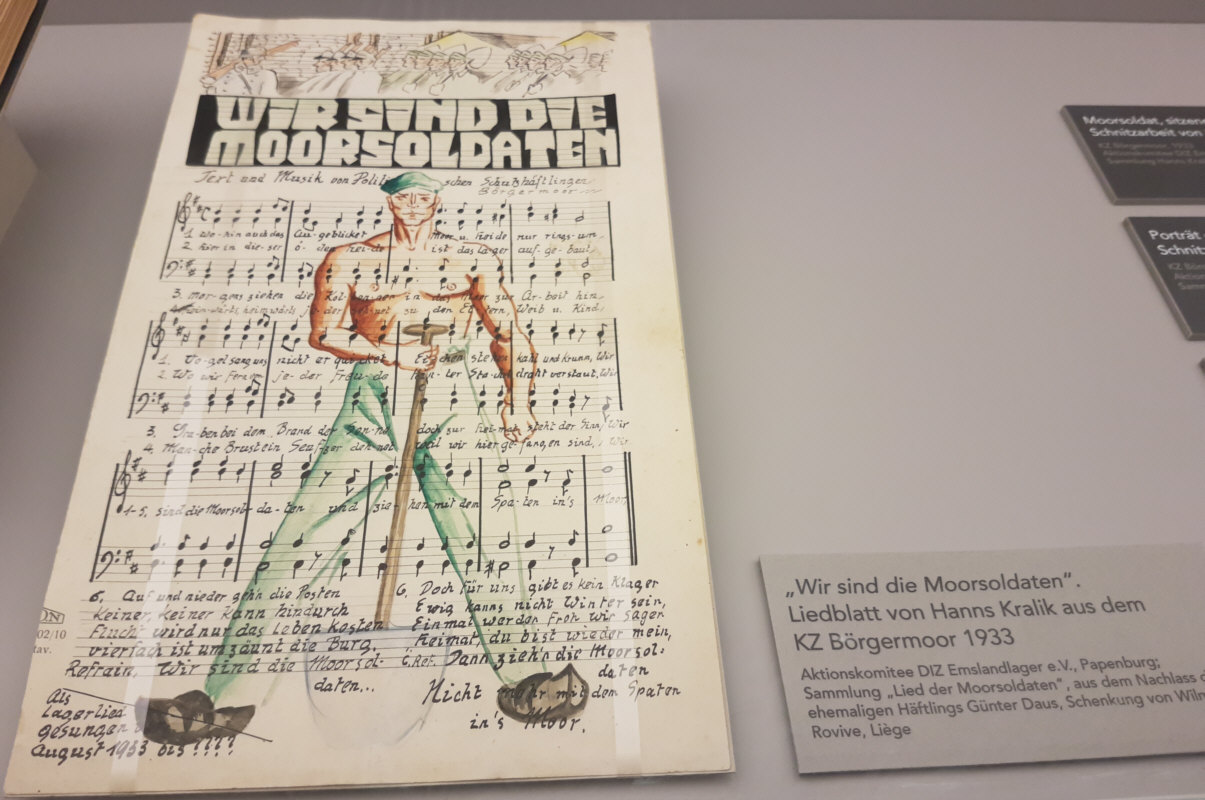 WIR SIND DIE
MOORSOLDATEN
Text und Musik von Politi schen Schutzhäftlingen
Börgermoor
1. Wo-hin auch das Au-ge blicket Moor u. Heide nur rings-um.
2. hier in die-ser ö-den hei-de ist das lager auf-ge-baut,
3. morgens ziehen die Kol-on-nen in das moor zur Ar-beit hin
heim-wärts heimwärts je-der seh-net zu den El-tern, Weib u. Kind,
1. Vo-gelsang uns nicht er quicket Ei-chen stehen kahl und krumm, Wir
2. Wo wir fern von je-der Freu-de hin-ter Sta-chel draht verstaut, Wir
3. Gra-ben bei dem Brand der Son-ne doch zur hei-mat steht der Sinn, Wir
4. Man-che Brust ein Seuf-zer deh-net weil wir hier ge-fang,en sind, Wir
1-5. sind die Moorsol-da-ten und zie-hen mit dem Spa-ten in's Moor,
5. Auf und nieder gehn die Posten
keiner, keiner kann hindurch
Flucht wird nur das leben kosten
vierfach ist umzäunt die Burg.
Refrain, Wir sind die Moorsol-
daten...
6. Doch für uns gibt es kein Klagen
Ewig kanns nicht Winter sein,
Einmal werden froh wir sagen
heimat, du bist wieder mein,
Ref. Dann zieh'n die Moorsol-
daten
Nicht mehr mit dem Spaten
in's Moor.
Als
lagerlied
gesungen
August 1933 bis ????
ON
02/10
tav.
„Wir sind die Moorsoldaten".
Liedblatt von Hanns Kralik aus dem
KZ Börgermoor 1933
Aktionskomitee DIZ Emslandlager e.V., Papenburg;
Sammlung „Lied der Moorsoldaten", aus dem Nachlass
ehemaligen Häftlings Günter Daus, Schenkung von
Rovive, Liège
Moorsoldat,
Schnitzarbeit von
KZ Börgermoor, 1933
Porträt